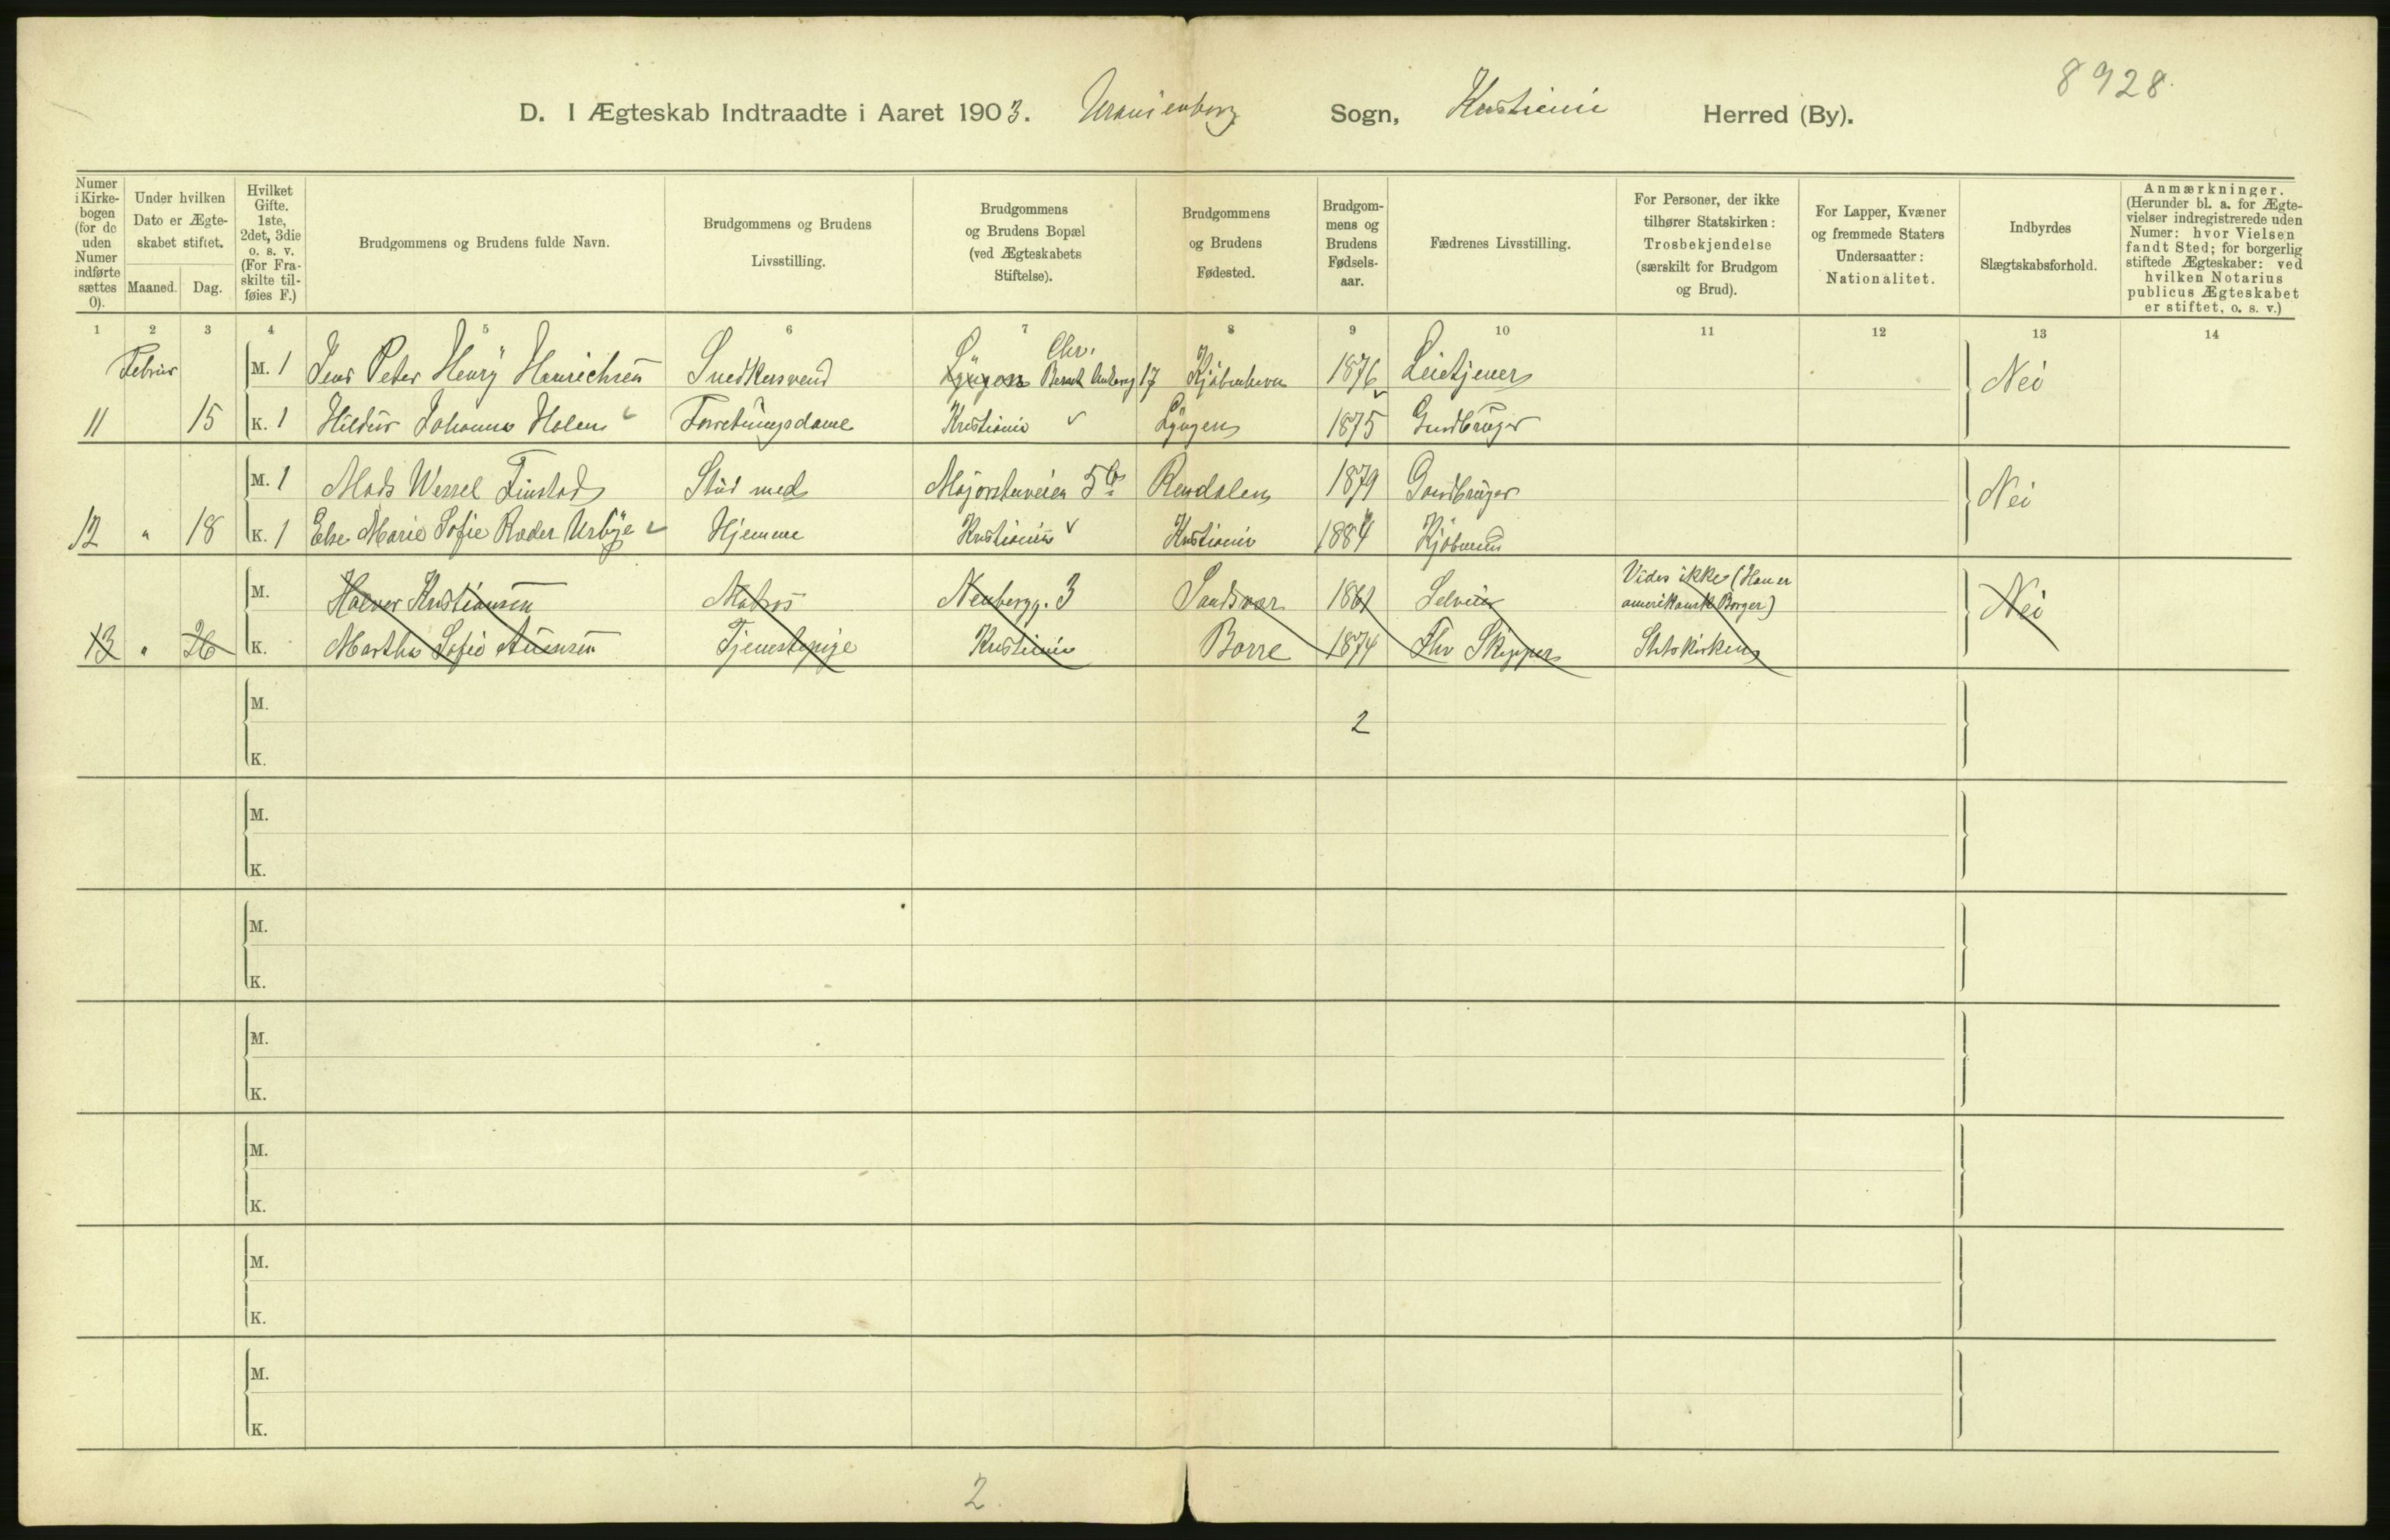 8928.
D. I Ægteskab Indtraadte i Aaret 1903. Uranienborg Sogn, Kristiania Herred (By).
Numer i Kirkebogen (for de uden Numer indførte sættes 0).
Under hvilken Dato er Ægteskabet stiftet.
Maaned. Dag.
Hvilket Gifte. 1ste, 2det, 3die o. s. v. (For Fraskilte tilføies F.)
Brudgommens og Brudens fulde Navn.
Brudgommens og Brudens Livsstilling.
Brudgommens og Brudens Bopæl (ved Ægteskabets Stiftelse).
Brudgommens og Brudens Fødested.
Brudgommens og Brudens Fødselsaar.
Fædrenes Livsstilling.
For Personer, der ikke tilhører Statskirken: Trosbekjendelse (særskilt for Brudgom og Brud).
For Lapper, Kvæner og fremmede Staters Undersaatter: Nationalitet.
Indbyrdes Slægtskabsforhold.
Anmærkninger. (Herunder bl. a. for Ægtevielser indregistrerede uden Numer: hvor Vielsen fandt Sted; for borgerlig stiftede Ægteskaber: ved hvilken Notarius publicus Ægteskabet er stiftet, o. s. v.)
1 2 3 4 5 6 7 8 9 10 11 12 13 14
Februar M. 1 Jens Peter Henry Henrichsen Snedkersvend Lyngen Chr. 17 Kjøbenhavn 1876 Leietjener Nei
11 15 K. 1 Hildur Johanna Holen Forretningsdame Kristiania Lyngen 1875 Gaardbruger
M. 1 Mads Wessel Finstad Stud med Majorstuveien 5b Rendalen 1879 Gaardbruger Nei
12 " 18 K. 1 Else Marie Sofie Ræder Urbye Hjemme Kristiania Kristiania 1884 Kjøbmand
M. Halvor Kristiansen Matros Neubergg. 3 Sandsvær 1861 Selveier Vides ikke (Han er amerikansk Borger) Nei
13 " 26 K. Martha Sofie Tjenestepige Kristiania Borre 1874 Fhv Skipper Statskirken
M.
2
K.
M.
K.
M.
K.
M.
K.
M.
K.
M.
K.
M.
K.
2.